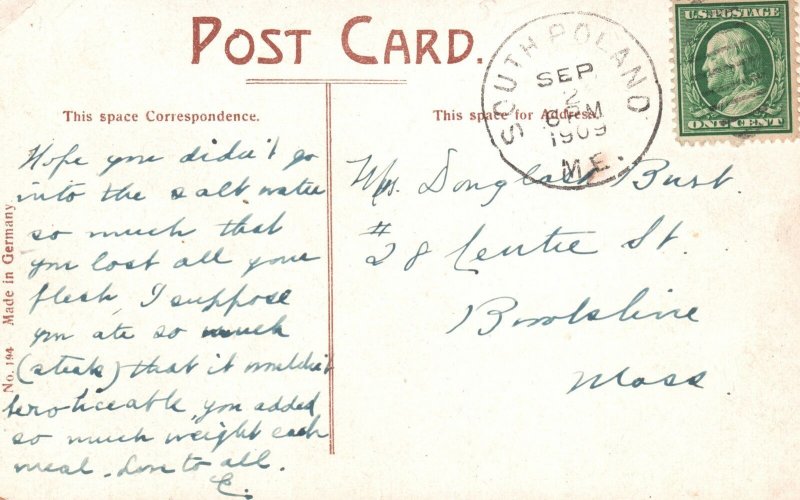 POST CARD.
SOUTH POLAND
SEP
2
6 PM
1909
ME.
U.S. POSTAGE
ONE CENT
This space Correspondence.
This space for Address.
Hope you didn't go
into the salt water
so much that
you lost all your
flesh, I suppose
you ate so much
(steak) that it wouldn't
be noticeable, you added
so much weight each
meal. Love to all.
E.
Mrs. Douglas Burt.
#
28 Centre St.
Brookline
Mass.
No. 194 Made in Germany